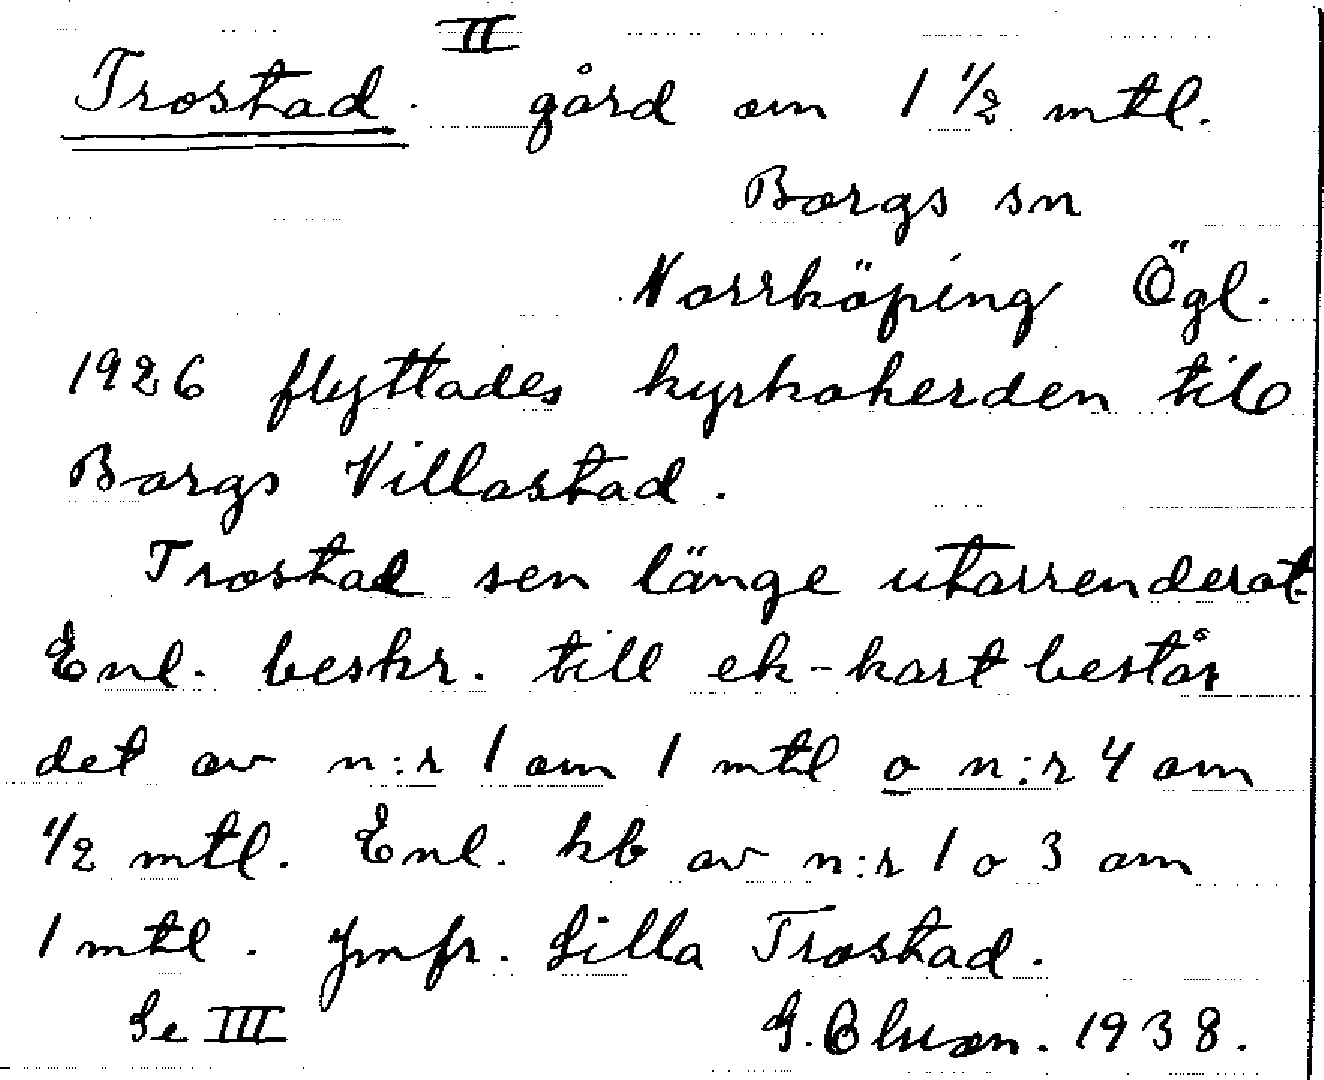 II
Trostad. gård om 1 1/2 mtl.
Borgs sn
Norrköping Ögl.
1926 flyttades kyrkoherden till
Borgs Villastad.
Trostad sen länge utarrenderat.
Enl. beskr. till ek-kart består
det av n:r 1 om 1 mtl o n:r 4 om
1/2 mtl. Enl. kb av n:r 1 o 3 om
1 mtl. Jmfr. Lilla Trostad.
Se III G. 1938.